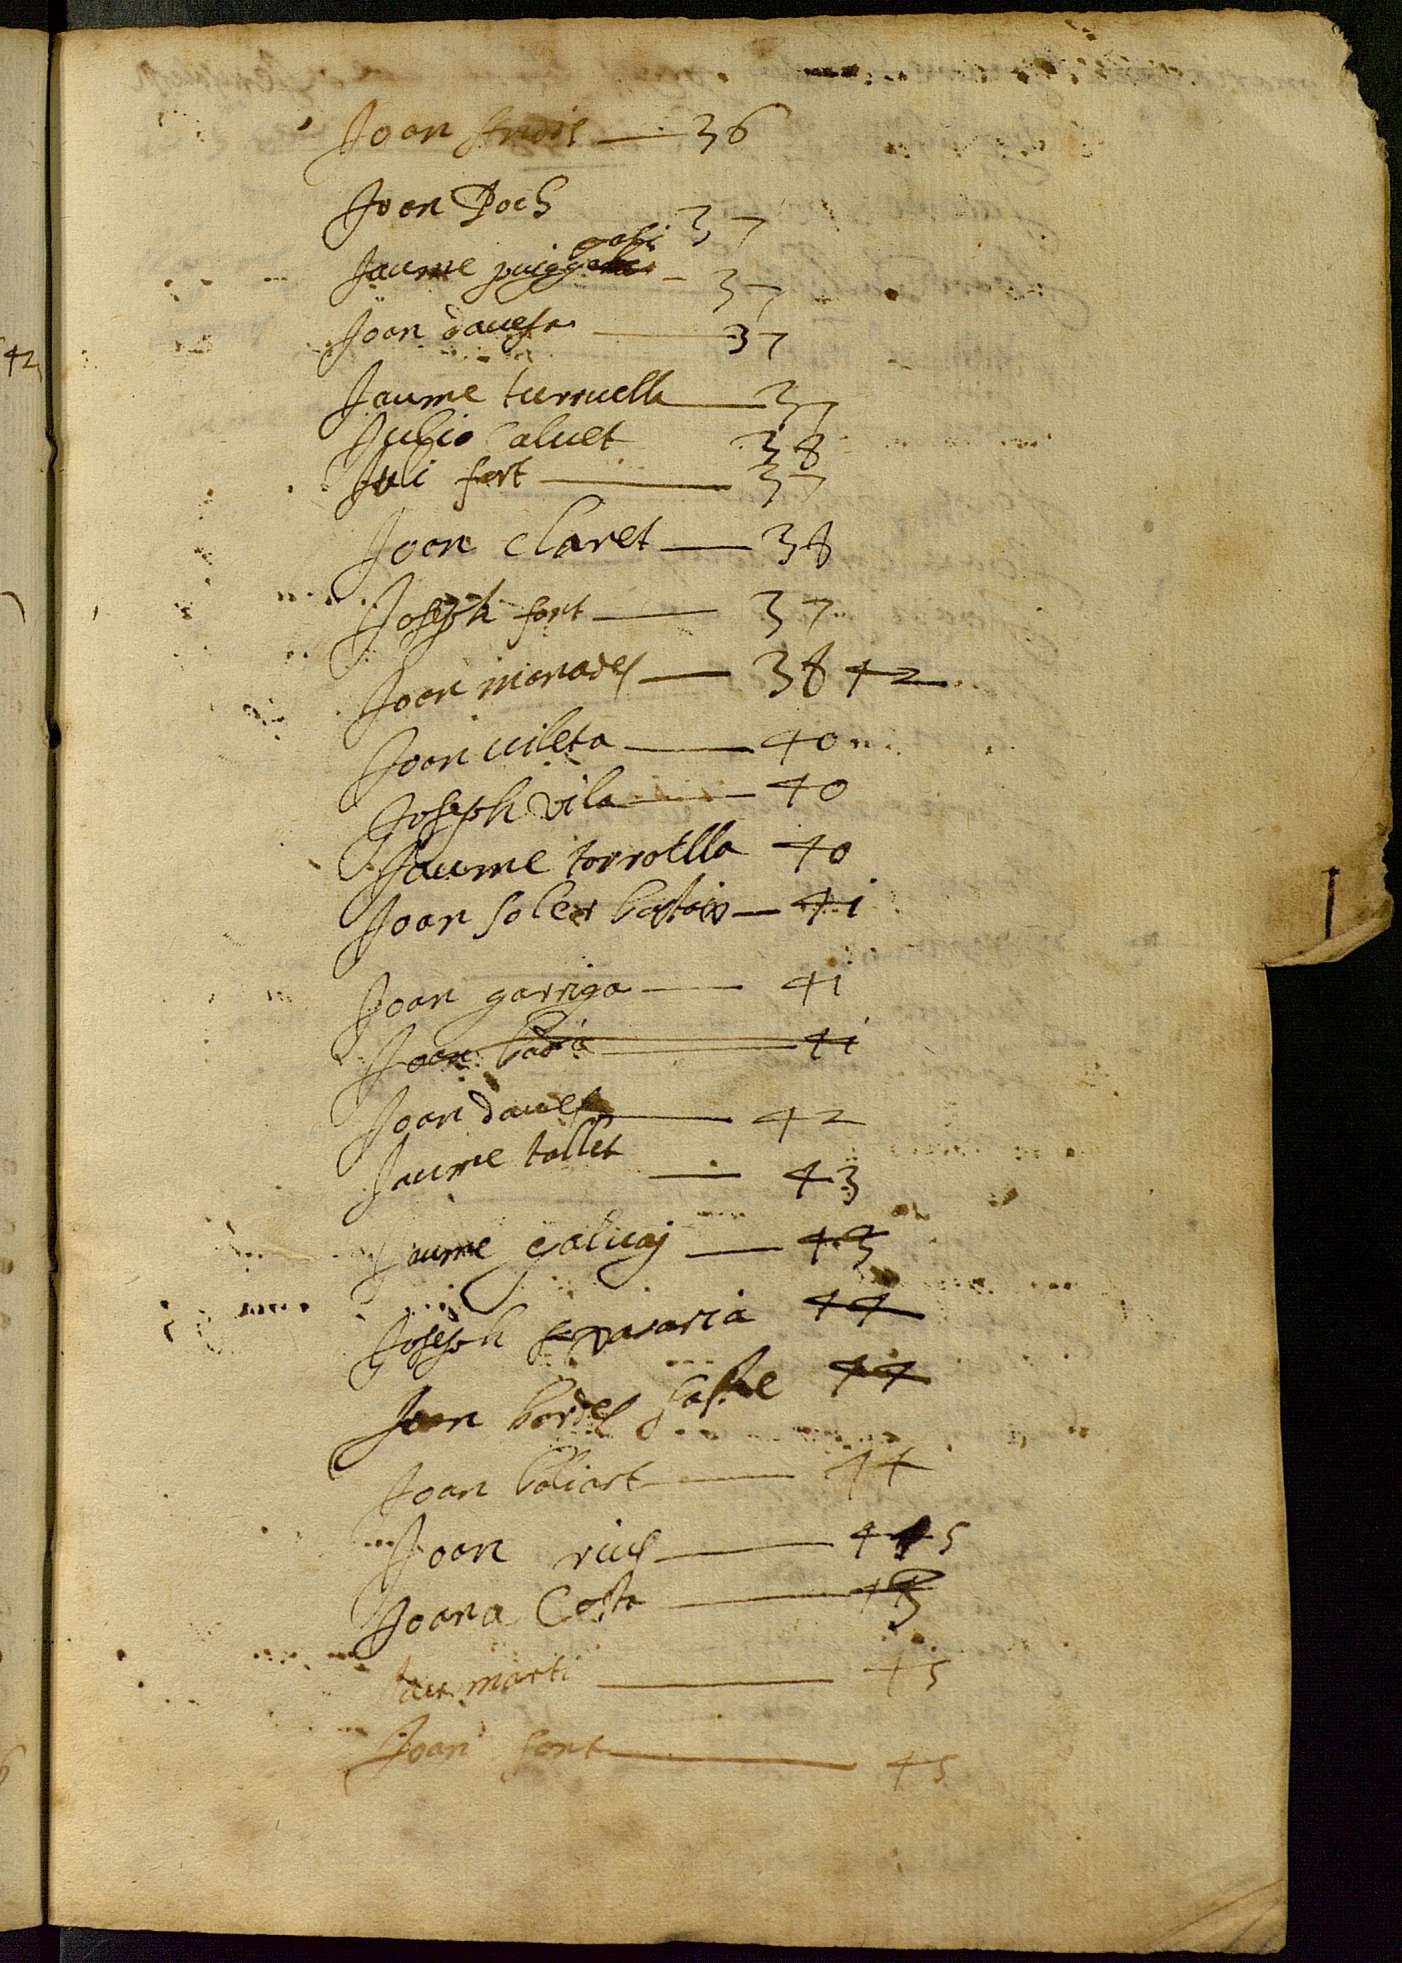 Joan — 36
Joan Poch 37
Jaume puigg gali - 37
Joan dauesa — 37
Jaume turruella — 37
Julio Caluet 38
Juli fort — 37
Joan claret — 38
Joseph fort — 37
Joan manades — 38 42
Joan vileta — 40
Joseph vila — 40
Jaume torroella 40
Joan soler — 41
Joan garriga — 41
Joan badia — 41
Joan daues — 42
Jaume tallet — 43
Jaume — 43
Joseph 44
Joan bordes sastre 44
Joan baliart — 44
Joan rius — 45
Joana Costa — 43
marti — 45
Joan font — 45
42